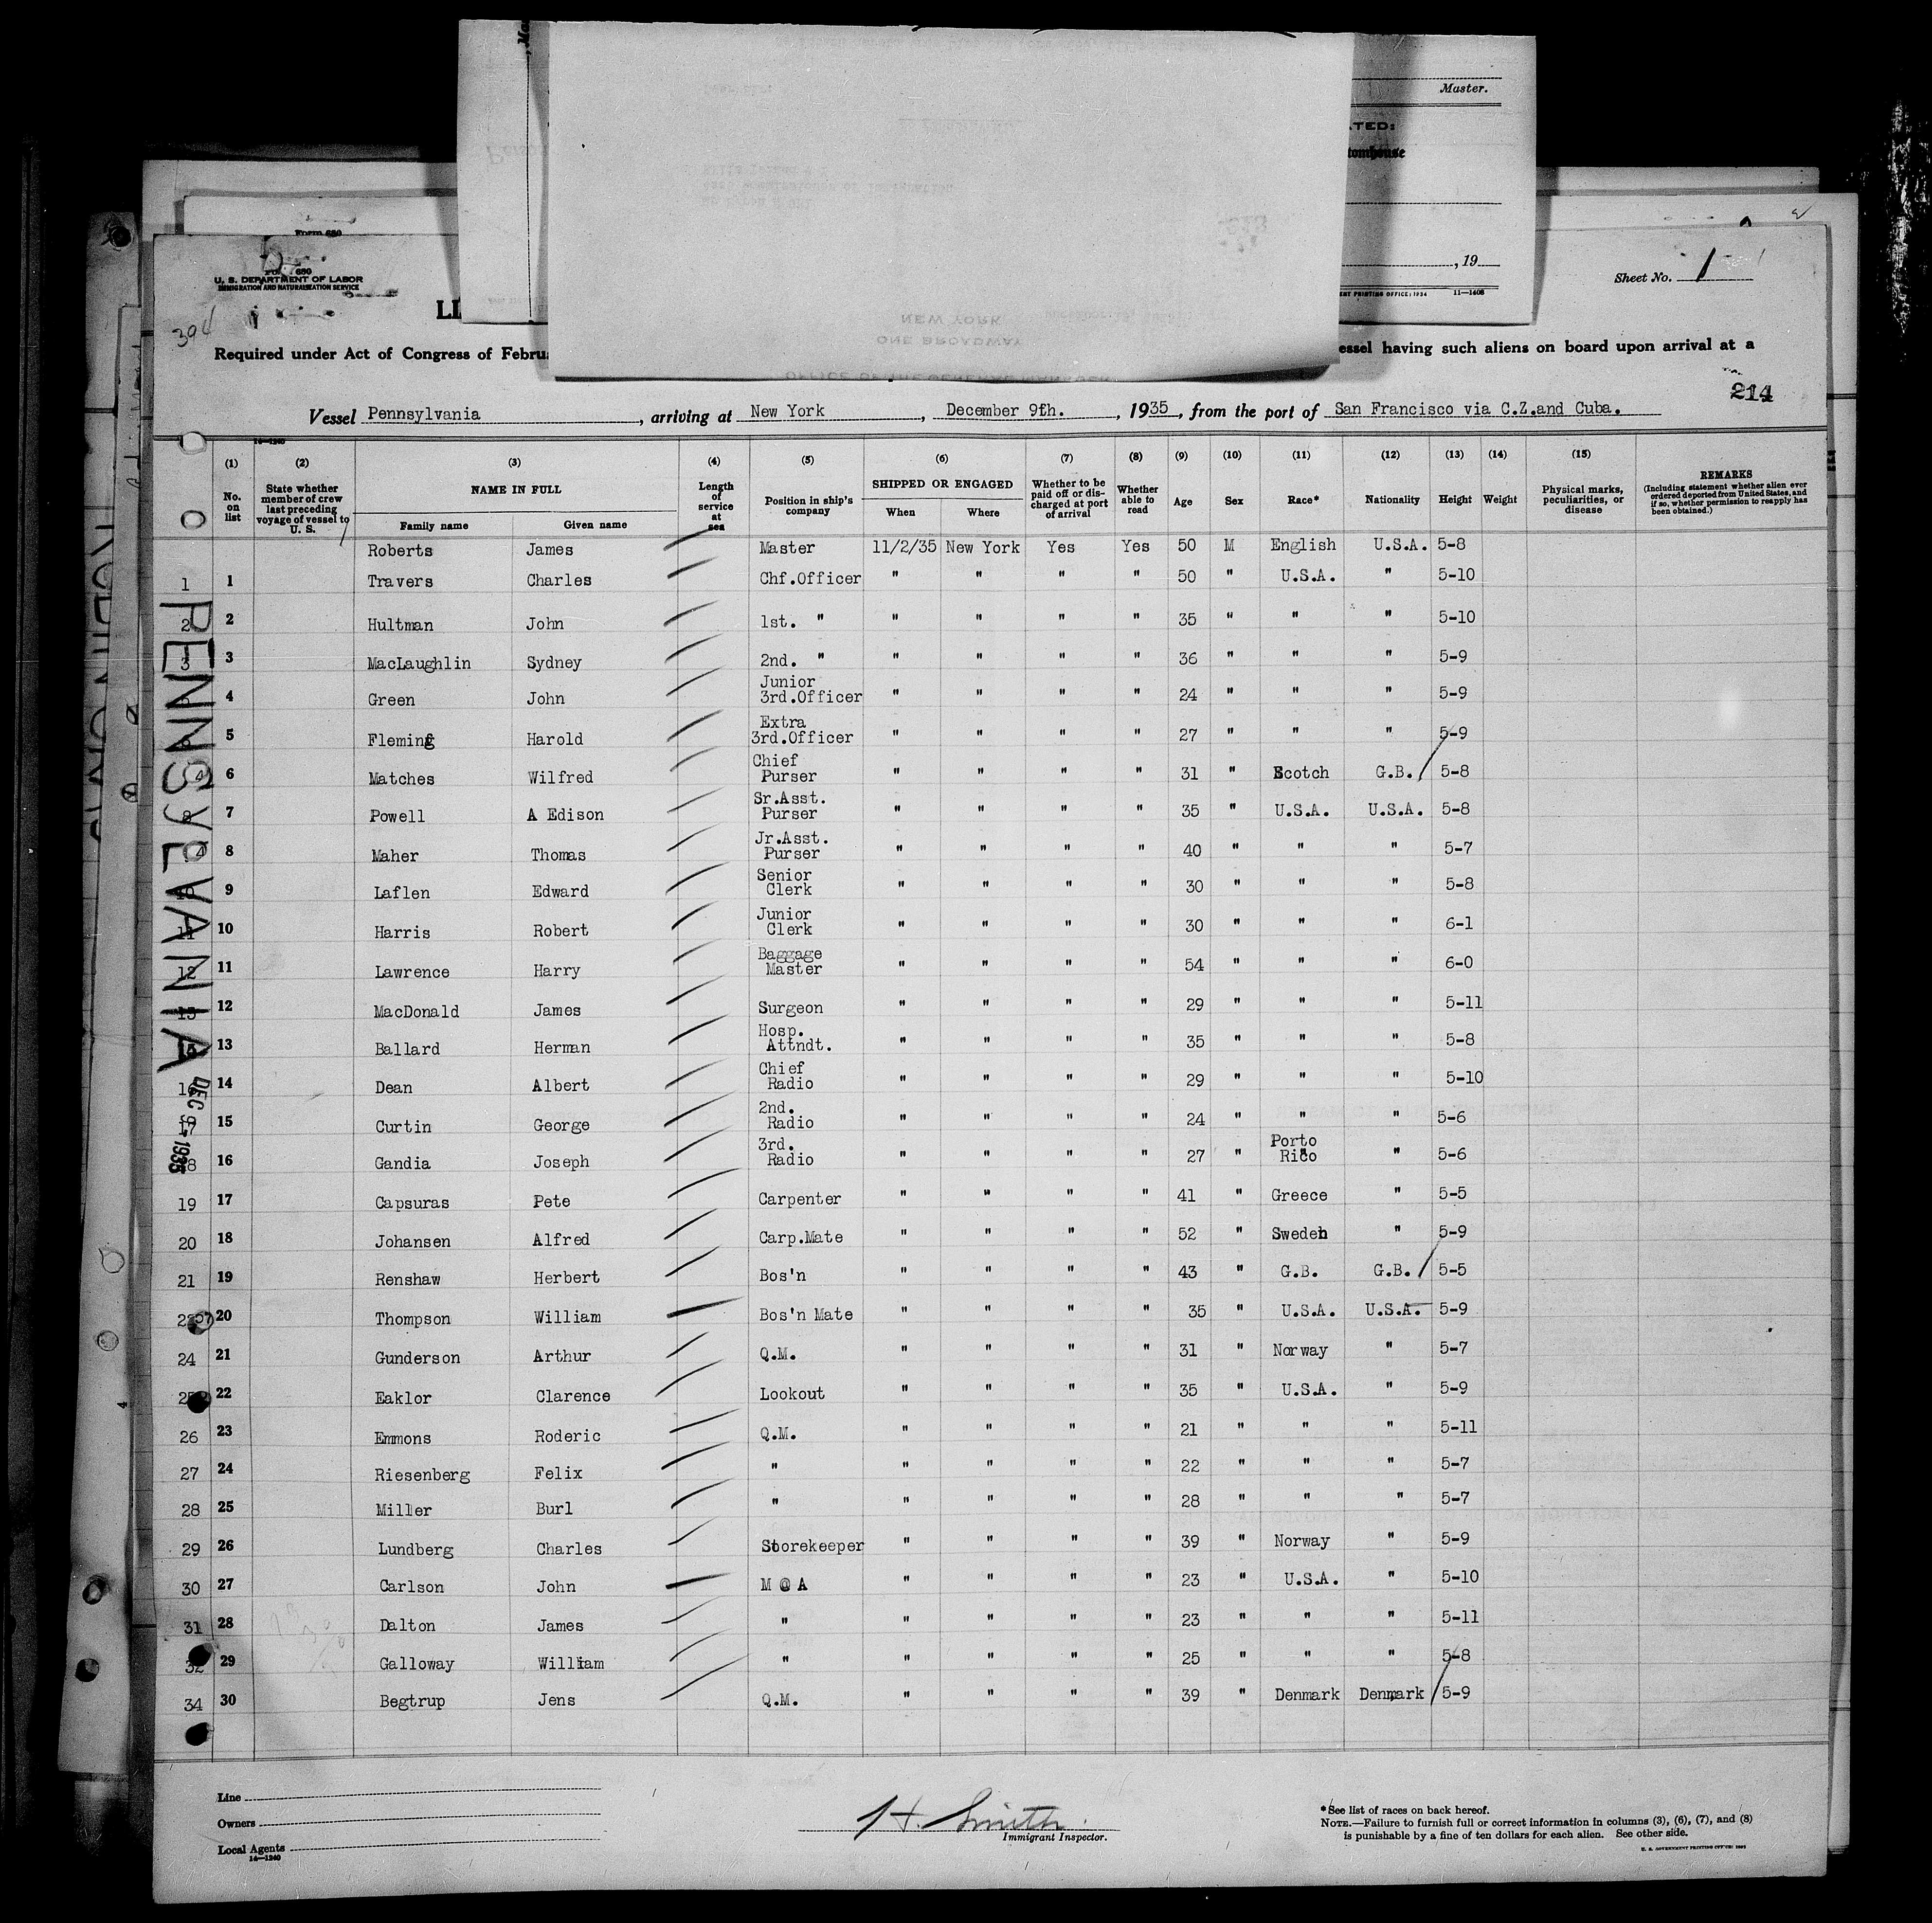 Master.
ATED:
tomhouse
, 19
ENT PRINTING OFFICE: 1934 11—1408
Form 680
Form 680
U. S. DEPARTMENT OF LABOR
IMMIGRATION AND NATURALIZATION SERVICE
Sheet No. 1
394
LI
NEW YORK
ONE BROADWAY
Required under Act of Congress of Febru
essel having such aliens on board upon arrival at a
214
Vessel Pennsylvania, arriving at New York, December 9th., 1935, from the port of San Francisco via C.Z.and Cuba.
14—1240
(1) (2) (3) (4) (5) (6) (7) (8) (9) (10) (11) (12) (13) (14) (15)
No. on list
State whether member of crew last preceding voyage of vessel to U. S.
NAME IN FULL
Family name Given name
Length of service at sea
Position in ship's company
SHIPPED OR ENGAGED
When Where
Whether to be paid off or discharged at port of arrival
Whether able to read
Age Sex Race* Nationality Height Weight
Physical marks, peculiarities, or disease
REMARKS
(Including statement whether alien ever ordered deported from United States, and if so, whether permission to reapply has been obtained.)
Roberts James Master 11/2/35 New York Yes Yes 50 M English U.S.A. 5-8
1 1 Travers Charles Chf.Officer " " " " 50 " U.S.A. " 5-10
2 2 Hultman John 1st. " " " " " 35 " " " 5-10
3 3 MacLaughlin Sydney 2nd. " " " " " 36 " " " 5-9
4 Green John Junior 3rd.Officer " " " " 24 " " " 5-9
5 Fleming Harold Extra 3rd.Officer " " " " 27 " " " 5-9
6 Matches Wilfred Chief Purser " " " " 31 " Scotch G.B. 5-8
8 7 Powell A Edison Sr.Asst. Purser " " " " 35 " U.S.A. U.S.A. 5-8
8 Maher Thomas Jr.Asst. Purser " " " " 40 " " " 5-7
10 9 Laflen Edward Senior Clerk " " " " 30 " " " 5-8
11 10 Harris Robert Junior Clerk " " " " 30 " " " 6-1
12 11 Lawrence Harry Baggage Master " " " " 54 " " " 6-0
13 12 MacDonald James Surgeon " " " " 29 " " " 5-11
15 13 Ballard Herman Hosp. Attndt. " " " " 35 " " " 5-8
16 14 Dean Albert Chief Radio " " " " 29 " " " 5-10
17 15 Curtin George 2nd. Radio " " " " 24 " " " 5-6
18 16 Gandia Joseph 3rd. Radio " " " " 27 " Porto Rico " 5-6
19 17 Capsuras Pete Carpenter " " " " 41 " Greece " 5-5
20 18 Johansen Alfred Carp.Mate " " " " 52 " Sweden " 5-9
21 19 Renshaw Herbert Bos'n " " " " 43 " G.B. G.B. 5-5
20 Thompson William Bos'n Mate " " " " 35 " U.S.A. U.S.A. 5-9
24 21 Gunderson Arthur Q.M. " " " " 31 " Norway " 5-7
25 22 Eaklor Clarence Lookout " " " " 35 " U.S.A. " 5-9
26 23 Emmons Roderic Q.M. " " " " 21 " " " 5-11
27 24 Riesenberg Felix " " " " " 22 " " " 5-7
28 25 Miller Burl " " " " " 28 " " " 5-7
29 26 Lundberg Charles Storekeeper " " " " 39 " Norway " 5-9
30 27 Carlson John M @ A " " " " 23 " U.S.A. " 5-10
31 28 Dalton James " " " " " 23 " " " 5-11
32 29 Galloway William " " " " " 25 " " " 5-8
34 30 Begtrup Jens Q.M. " " " " 39 " Denmark Denmark 5-9
PENNSYLVANIA
DEC 9 - 1935
Line
Owners
Local Agents
14—1240
H. Smith
Immigrant Inspector.
*See list of races on back hereof.
NOTE.—Failure to furnish full or correct information in columns (3), (6), (7), and (8)
is punishable by a fine of ten dollars for each alien. See other side.